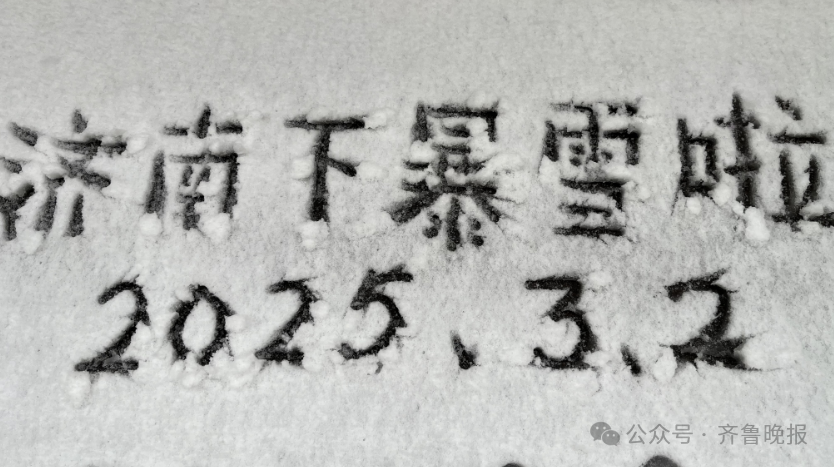 济南下暴雪啦
2025.3.2
公众号 · 齐鲁晚报